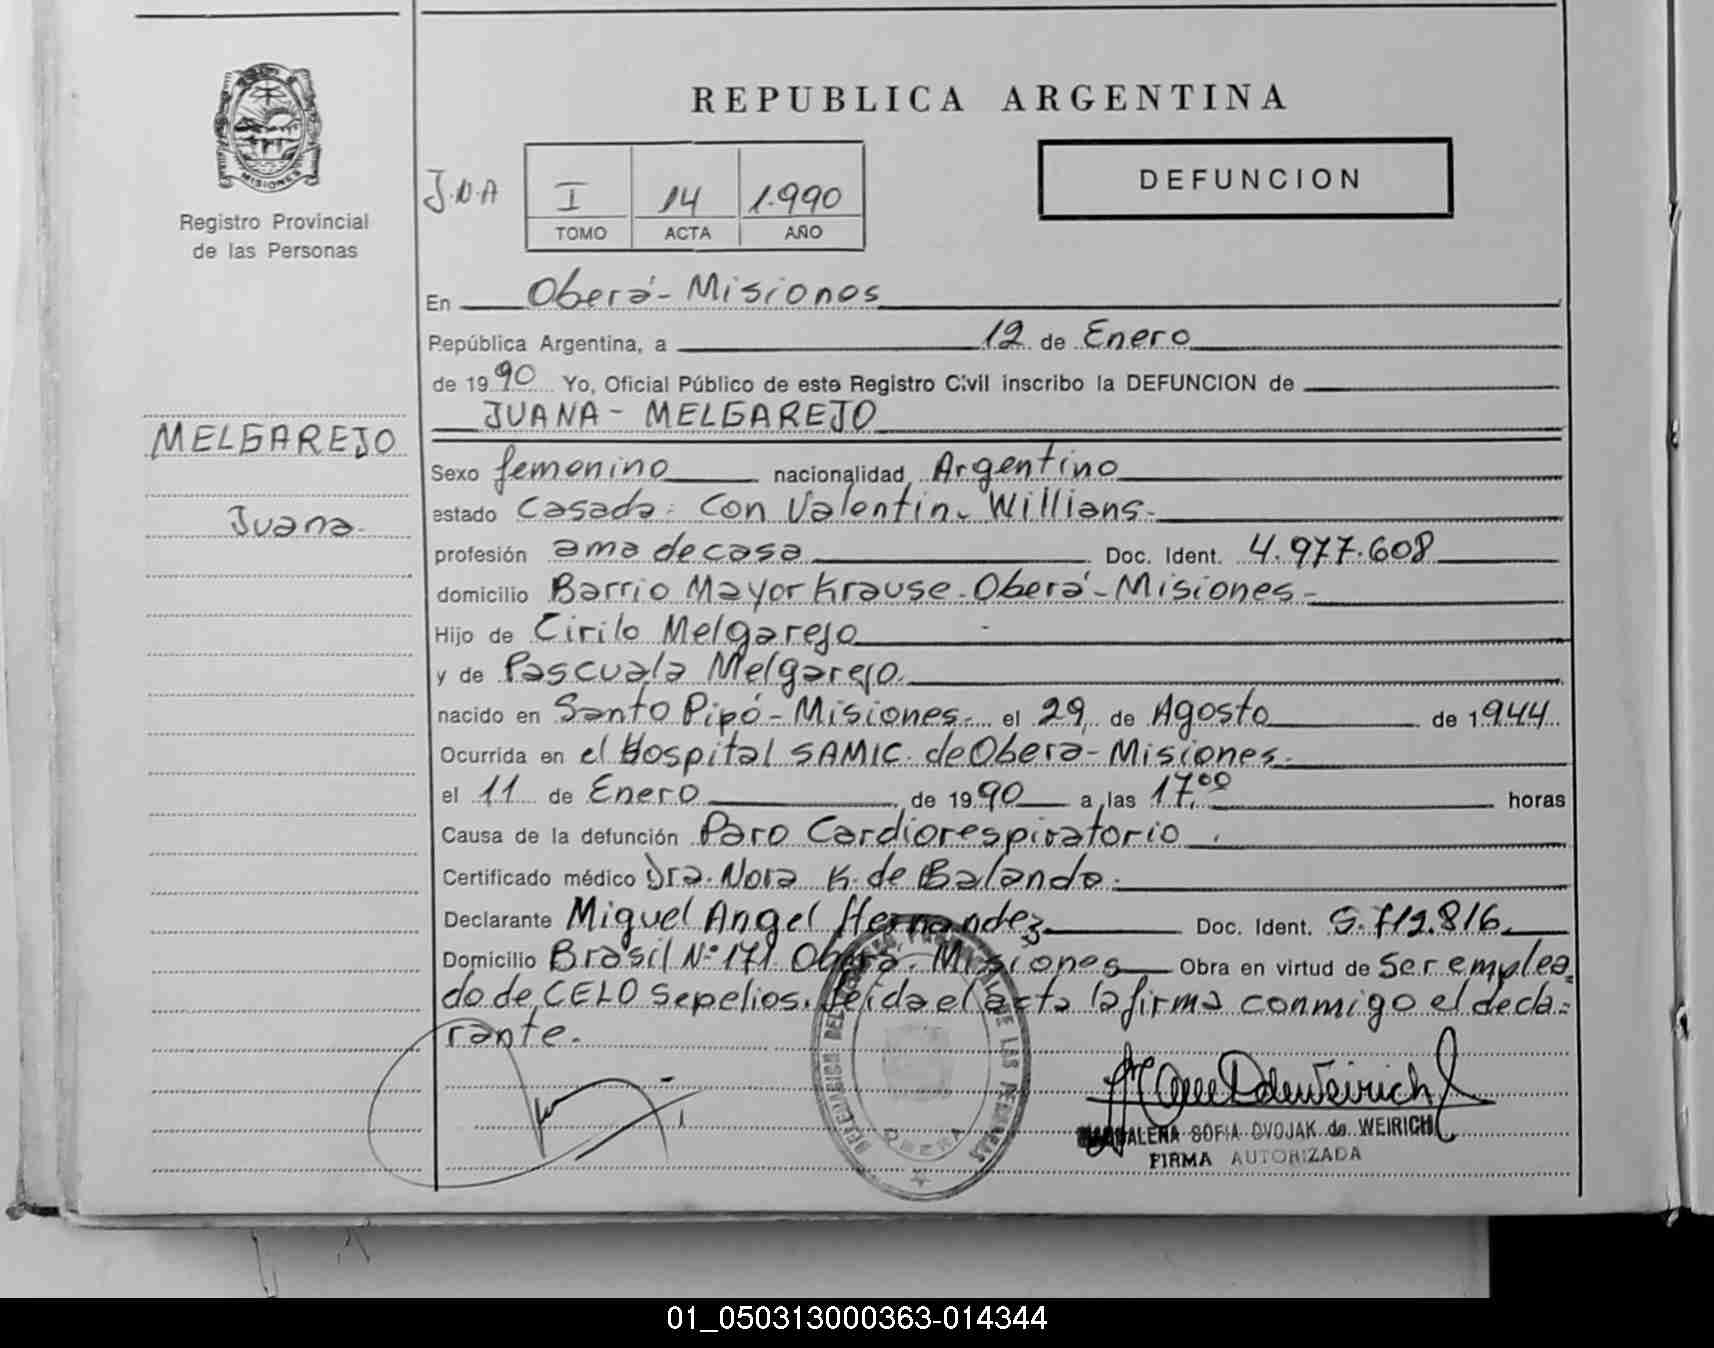 REPUBLICA ARGENTINA
MISIONES
Registro Provincial
de las Personas
J.N.A
I 14 1.990
TOMO ACTA AÑO
DEFUNCION
En Oberá - Misiones
República Argentina, a 12 de Enero
de 1990 Yo, Oficial Público de este Registro Civil inscribo la DEFUNCION de
JUANA - MELGAREJO
MELGAREJO
Juana.
Sexo femenino nacionalidad Argentino
estado Casada: Con Valentin. Willians.
profesión ama de casa Doc. Ident. 4.977.608
domicilio Barrio Mayor Krause - Oberá - Misiones -
Hijo de Cirilo Melgarejo
y de Pascuala Melgarejo.
nacido en Santo Pipó - Misiones. el 29, de Agosto de 1944.
Ocurrida en el Hospital SAMIC. de Obera - Misiones.
el 11 de Enero de 1990 a las 17.00 horas
Causa de la defunción Paro Cardiorespiratorio.
Certificado médico Dra. Nora K. de Balanda.
Declarante Miguel Angel Hernandez Doc. Ident. 5.712.816.
Domicilio Brasil Nº 171 Oberá. Misiones Obra en virtud de Ser emplea
do de CELO Sepelios. Leída el acta la firma conmigo el decla-
rante.
DELEGACION DEL REGISTRO PROVINCIAL DE LAS PERSONAS
OBERA
MAGDALENA SOFIA DVOJAK de WEIRICH
FIRMA AUTORIZADA
01_050313000363-014344